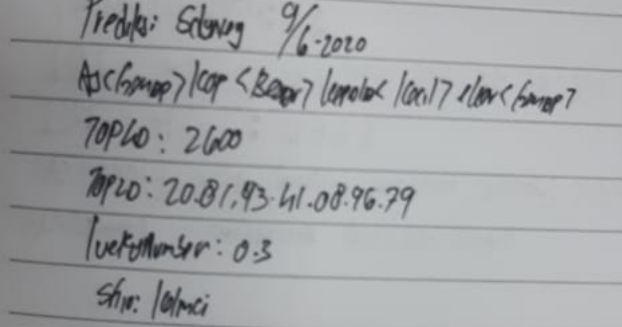 Prediksi: Sdyney 9/6-2020
As<Genap> kop <Besar> kepala< kecil> ekor< Genap>
TOP4D: 2600
Top2D: 20.81.93.41.08.96.79
lucky Number: 0.3
Shio: kelinci